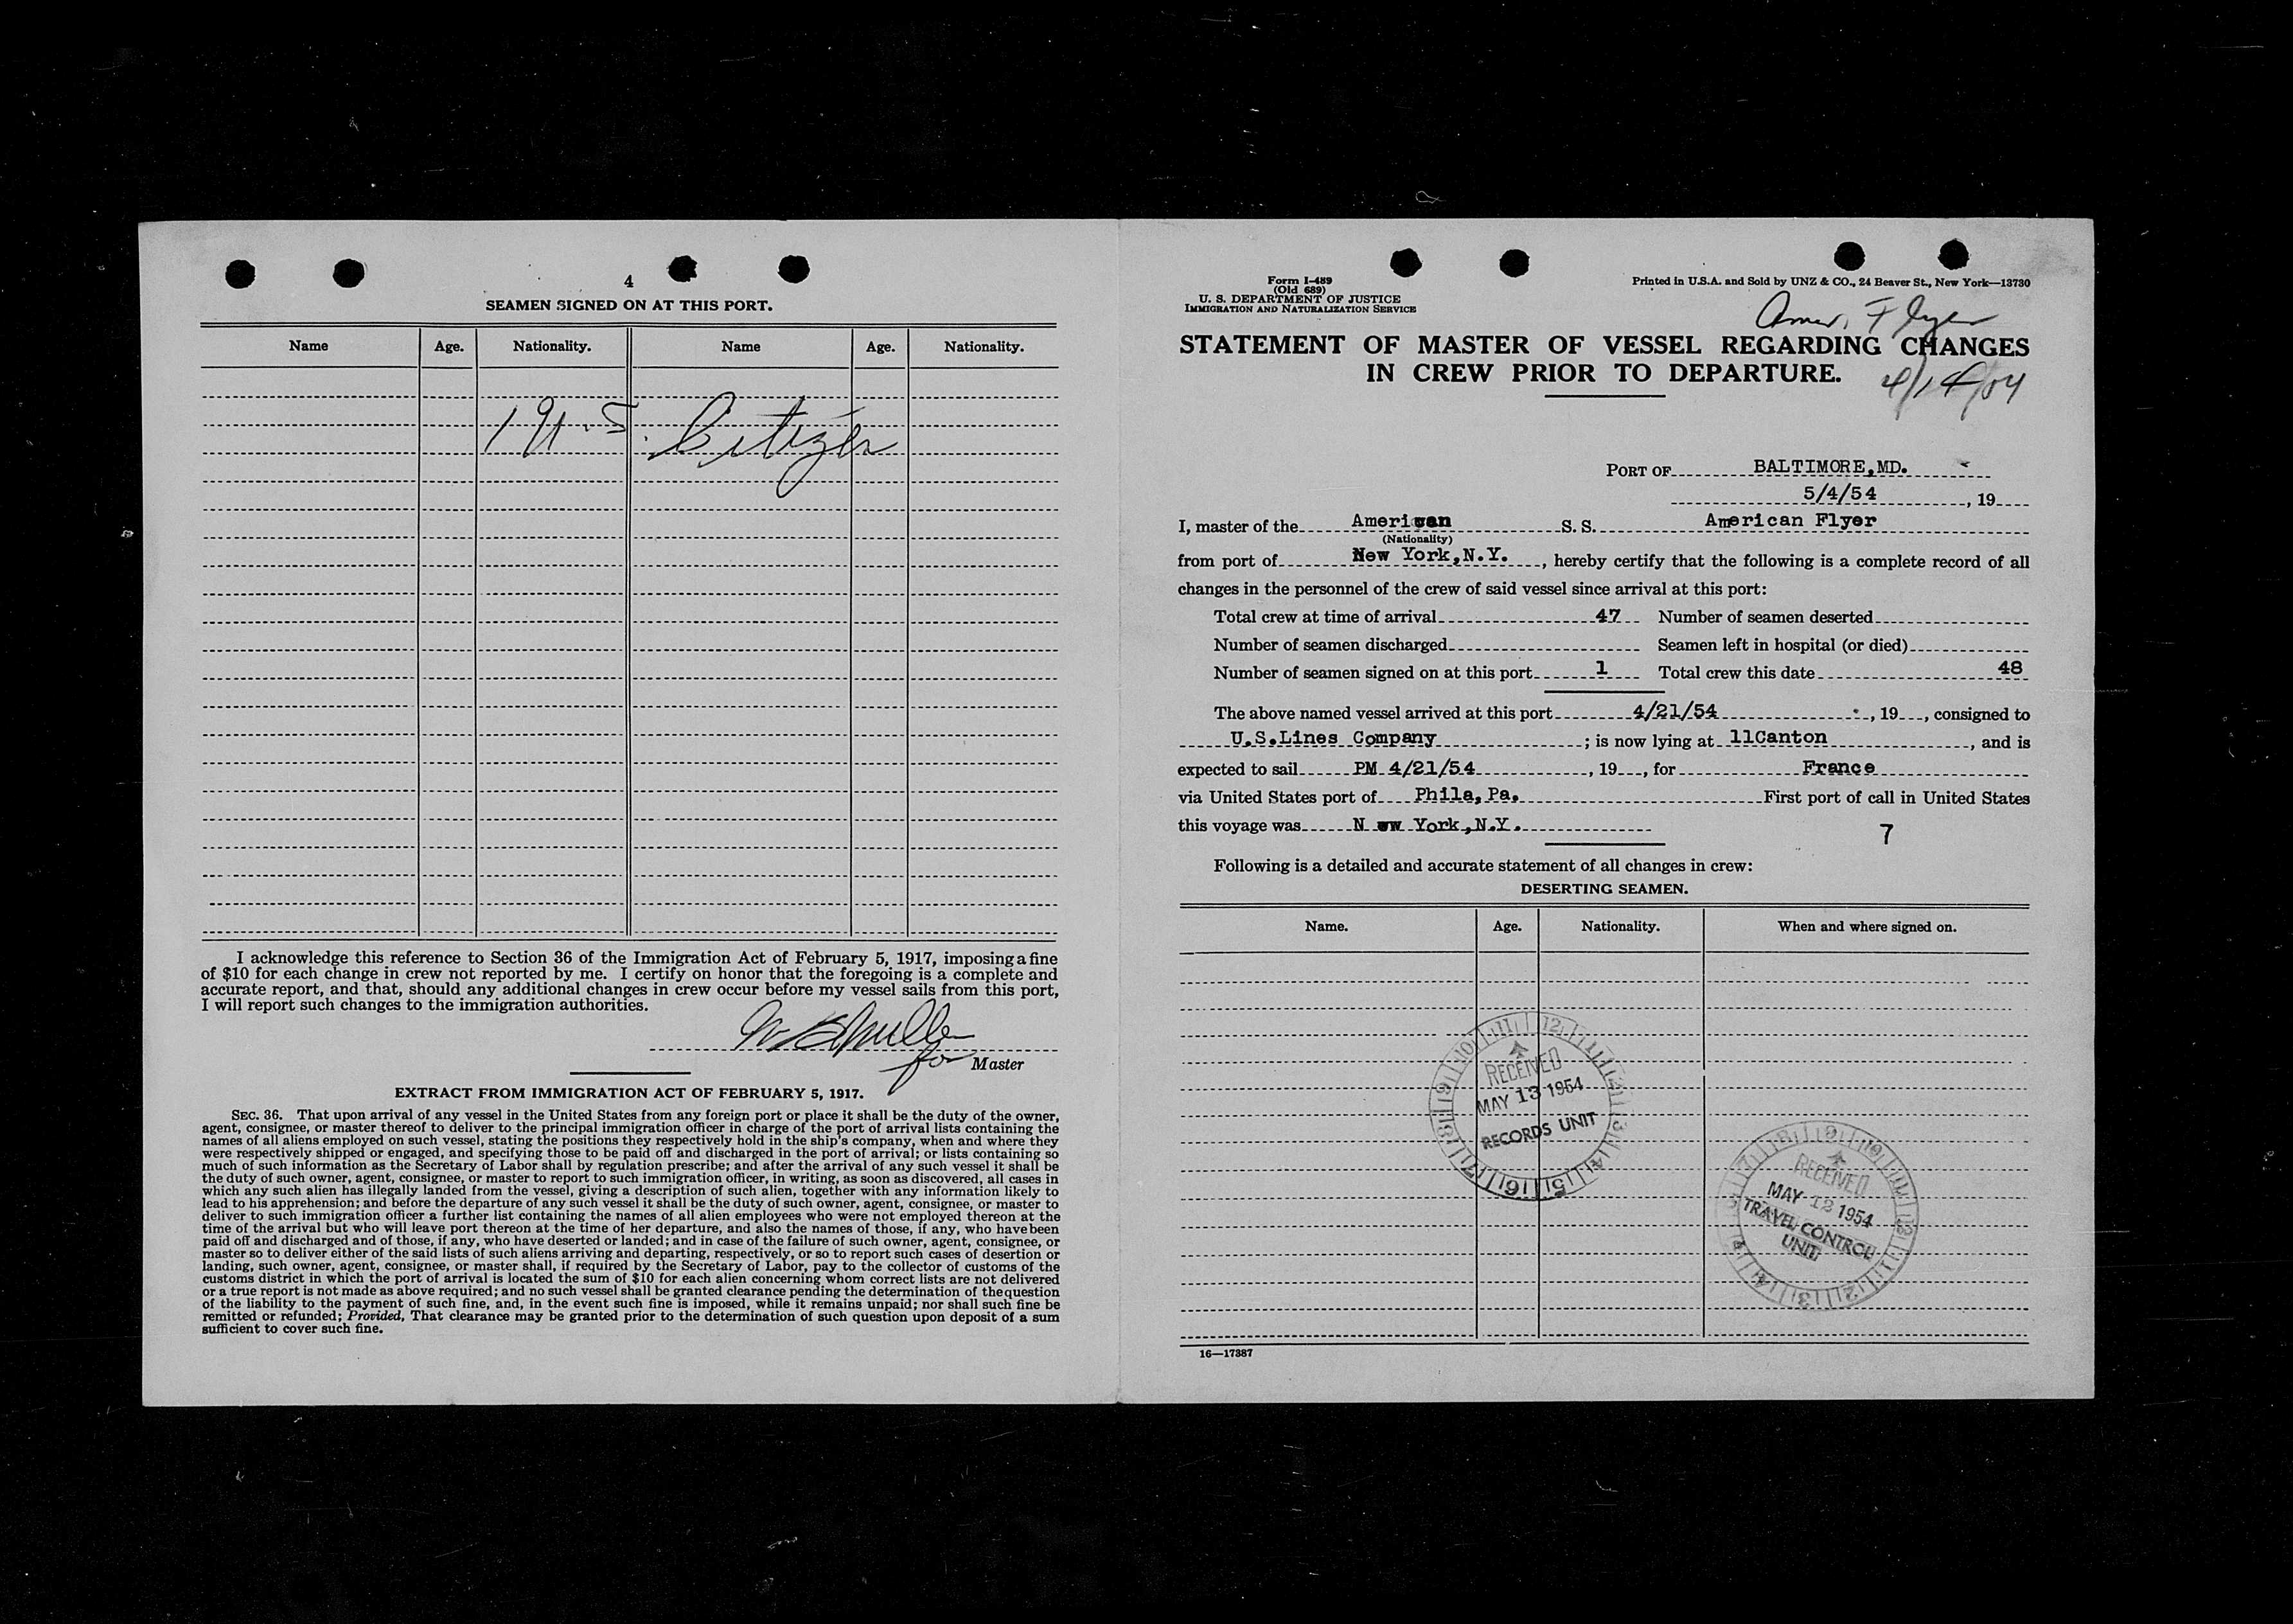 4
SEAMEN SIGNED ON AT THIS PORT.
Name Age. Nationality. Name Age. Nationality.
Citizen
I acknowledge this reference to Section 36 of the Immigration Act of February 5, 1917, imposing a fine
of $10 for each change in crew not reported by me. I certify on honor that the foregoing is a complete and
accurate report, and that, should any additional changes in crew occur before my vessel sails from this port,
I will report such changes to the immigration authorities.
for Master
EXTRACT FROM IMMIGRATION ACT OF FEBRUARY 5, 1917.
SEC. 36. That upon arrival of any vessel in the United States from any foreign port or place it shall be the duty of the owner,
agent, consignee, or master thereof to deliver to the principal immigration officer in charge of the port of arrival lists containing the
names of all aliens employed on such vessel, stating the positions they respectively hold in the ship's company, when and where they
were respectively shipped or engaged, and specifying those to be paid off and discharged in the port of arrival; or lists containing so
much of such information as the Secretary of Labor shall by regulation prescribe; and after the arrival of any such vessel it shall be
the duty of such owner, agent, consignee, or master to report to such immigration officer, in writing, as soon as discovered, all cases in
which any such alien has illegally landed from the vessel, giving a description of such alien, together with any information likely to
lead to his apprehension; and before the departure of any such vessel it shall be the duty of such owner, agent, consignee, or master to
deliver to such immigration officer a further list containing the names of all alien employees who were not employed thereon at the
time of the arrival but who will leave port thereon at the time of her departure, and also the names of those, if any, who have been
paid off and discharged and of those, if any, who have deserted or landed; and in case of the failure of such owner, agent, consignee, or
master so to deliver either of the said lists of such aliens arriving and departing, respectively, or so to report such cases of desertion or
landing, such owner, agent, consignee, or master shall, if required by the Secretary of Labor, pay to the collector of customs of the
customs district in which the port of arrival is located the sum of $10 for each alien concerning whom correct lists are not delivered
or a true report is not made as above required; and no such vessel shall be granted clearance pending the determination of the question
of the liability to the payment of such fine, and, in the event such fine is imposed, while it remains unpaid; nor shall such fine be
remitted or refunded; Provided, That clearance may be granted prior to the determination of such question upon deposit of a sum
sufficient to cover such fine.
Form I-489
(Old 689)
U. S. DEPARTMENT OF JUSTICE
IMMIGRATION AND NATURALIZATION SERVICE
Printed in U.S.A. and Sold by UNZ & CO., 24 Beaver St., New York—13730
Amer. Flyer
STATEMENT OF MASTER OF VESSEL REGARDING CHANGES
IN CREW PRIOR TO DEPARTURE.
PORT OF BALTIMORE,MD.
5/4/54 , 19
I, master of the American S. S. American Flyer
(Nationality)
from port of New York,N.Y. , hereby certify that the following is a complete record of all
changes in the personnel of the crew of said vessel since arrival at this port:
Total crew at time of arrival 47 Number of seamen deserted
Number of seamen discharged Seamen left in hospital (or died)
Number of seamen signed on at this port 1 Total crew this date 48
The above named vessel arrived at this port 4/21/54 , 19 , consigned to
U.S.Lines Company ; is now lying at 11Canton , and is
expected to sail PM 4/21/54 , 19 , for France
via United States port of Phila,Pa. First port of call in United States
this voyage was N ew York,N.Y.
7
Following is a detailed and accurate statement of all changes in crew:
DESERTING SEAMEN.
Name. Age. Nationality. When and where signed on.
RECEIVED
MAY 13 1954
RECORDS UNIT
RECEIVED
MAY 12 1954
TRAVEL CONTROL
UNIT
16—17387